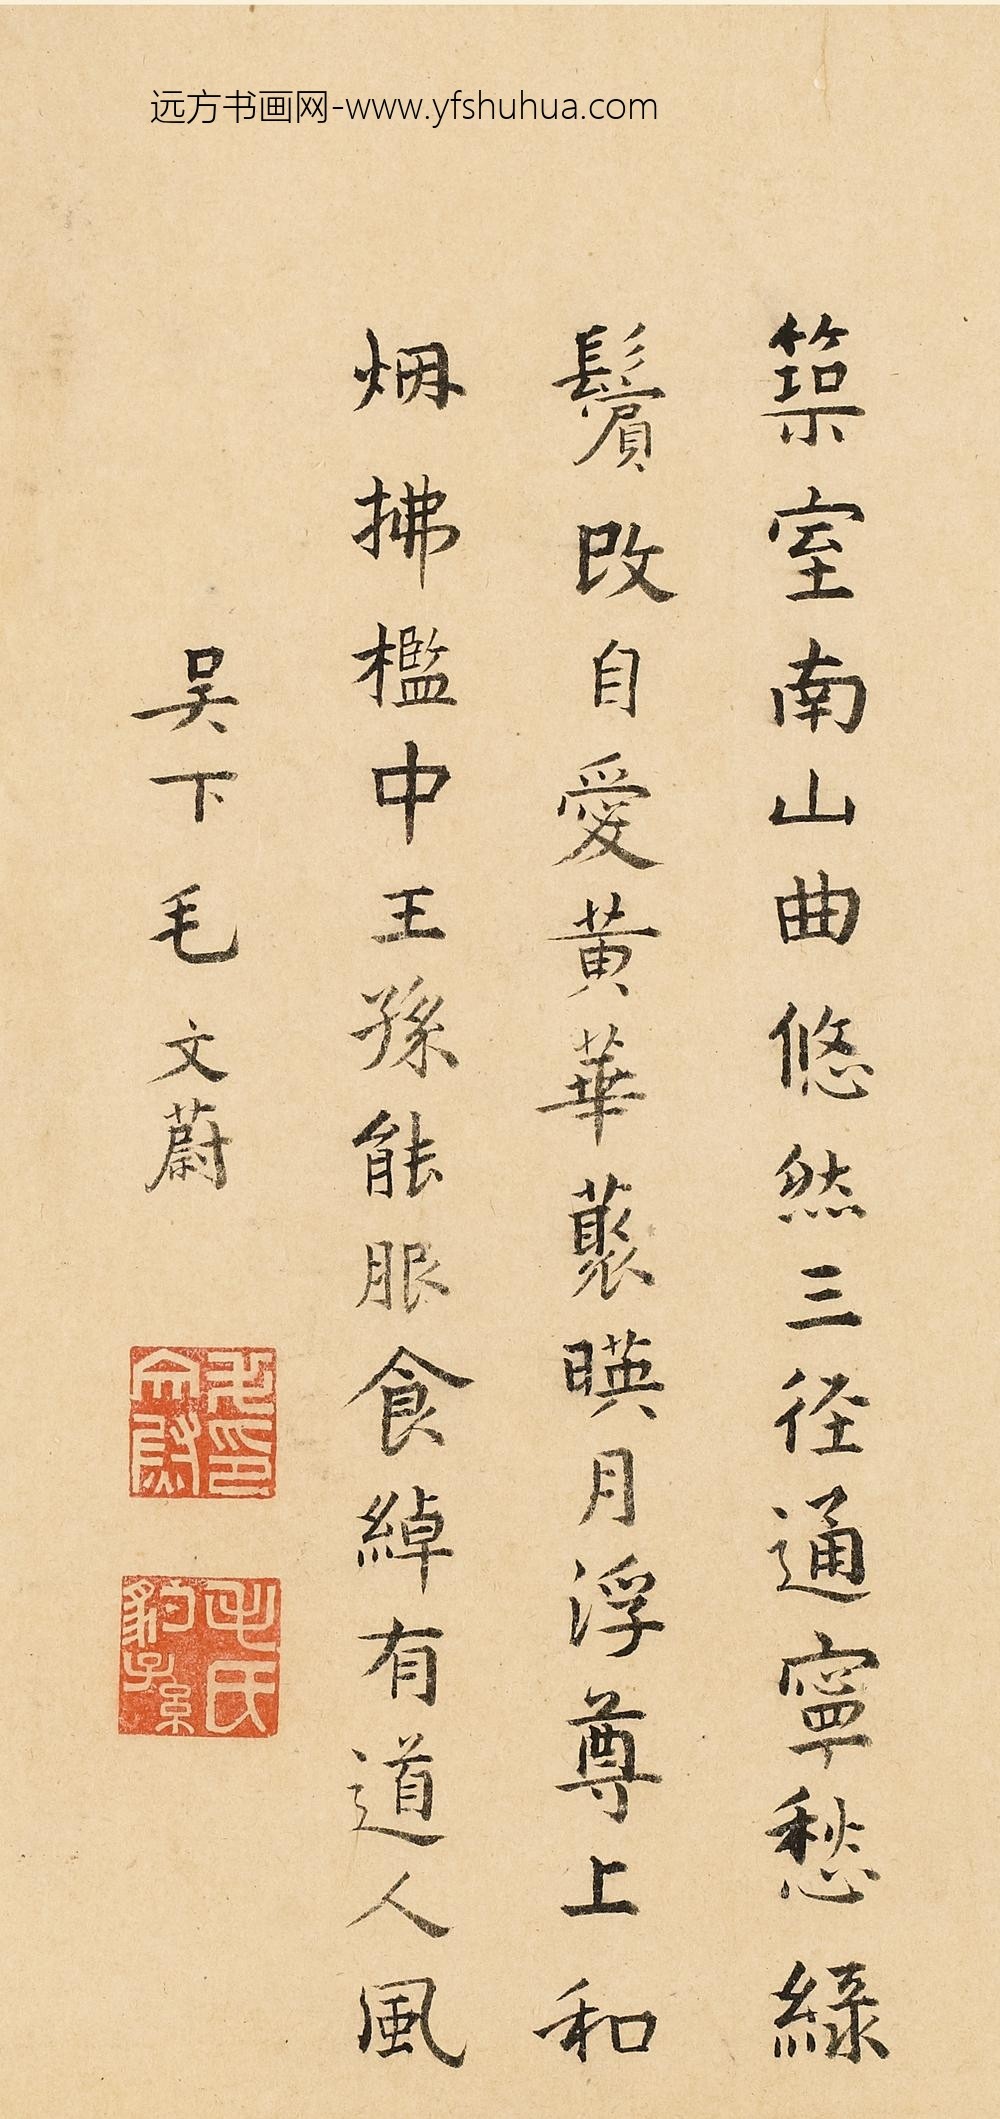 远方书画网-www.yfshuhua.com
築室南山曲悠然三径通寧愁綠
鬢改自愛黃華藂暎月浮尊上和
烟拂檻中王孫能服食綽有道人風
吴下毛文蔚
毛氏豹孫